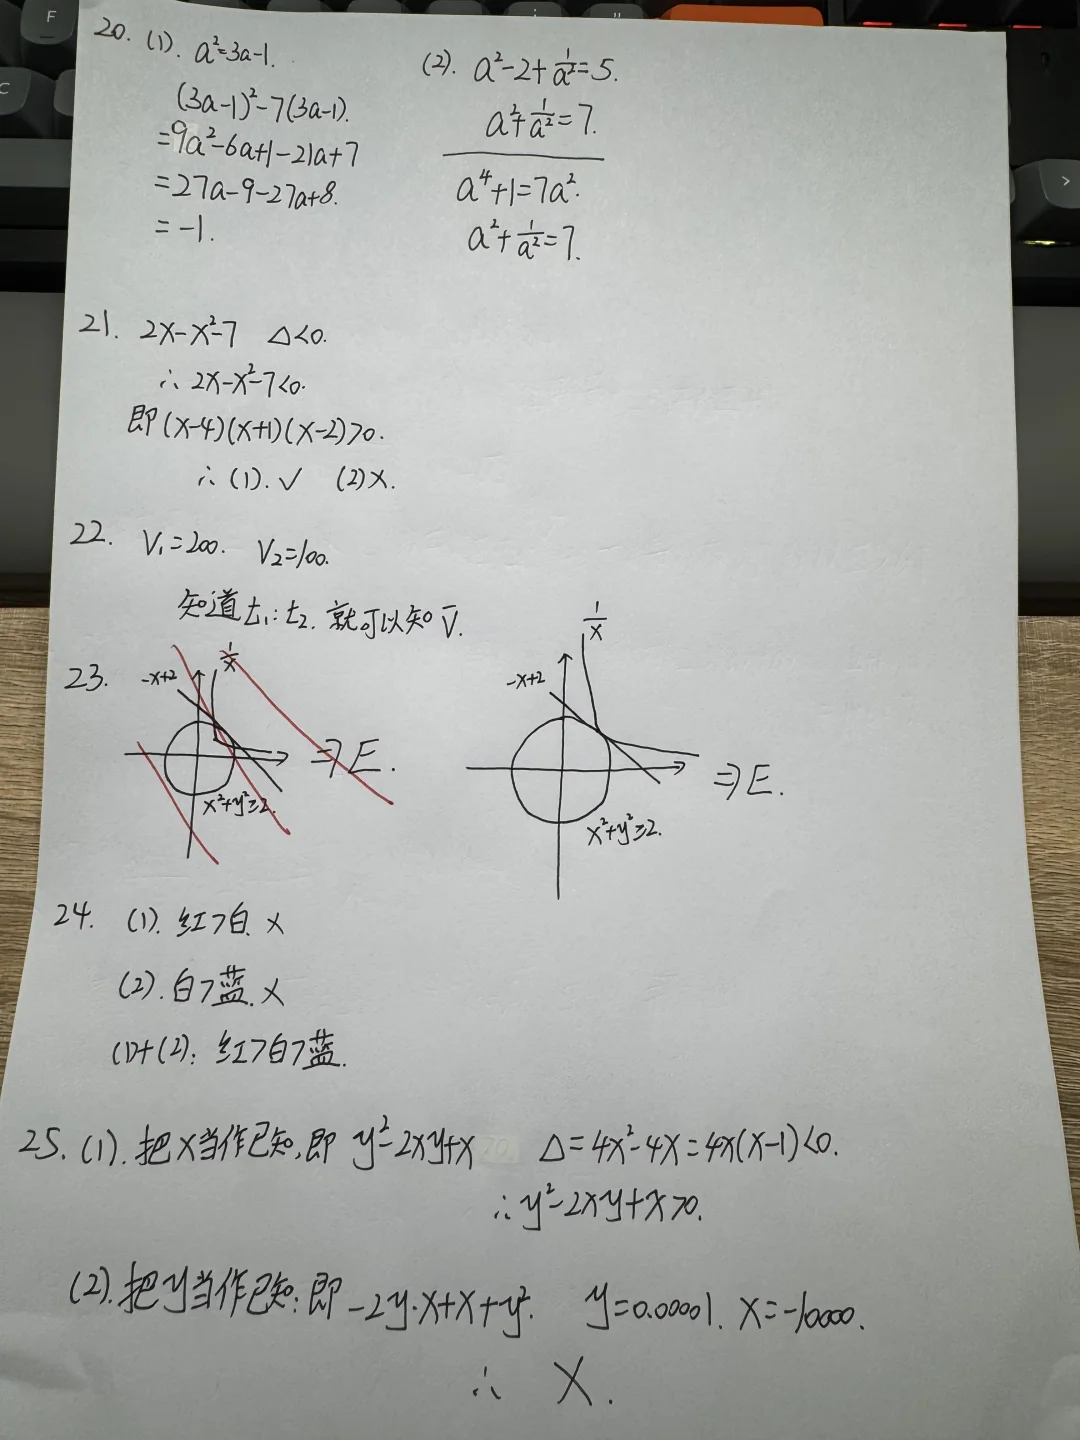 20. (1). a²=3a-1.
(3a-1)²-7(3a-1).
=9a²-6a+1-21a+7
=27a-9-27a+8.
=-1.
(2). a²-2+1/a²=5.
a²+1/a²=7.
a⁴+1=7a².
a²+1/a²=7.
21. 2x-x²-7 △<0.
∴ 2x-x²-7<0.
即(x-4)(x+1)(x-2)>0.
∴ (1). √ (2)×.
22. V₁=200. V₂=100.
知道t₁:t₂. 就可以知V̄.
23. -x+2 1/x
x²+y²≥2.
⇒E.
1/x
-x+2
x²+y²≥2.
⇒E.
24. (1). 红>白. ×
(2). 白>蓝. ×
(1)+(2): 红>白>蓝.
25. (1). 把x当作已知,即 y²-2xy+x △=4x²-4x=4x(x-1)<0.
∴y²-2xy+x>0.
(2). 把y当作已知: 即 -2y·x+x+y². y=0.00001. x=-10000.
∴ ×.
F
C
>